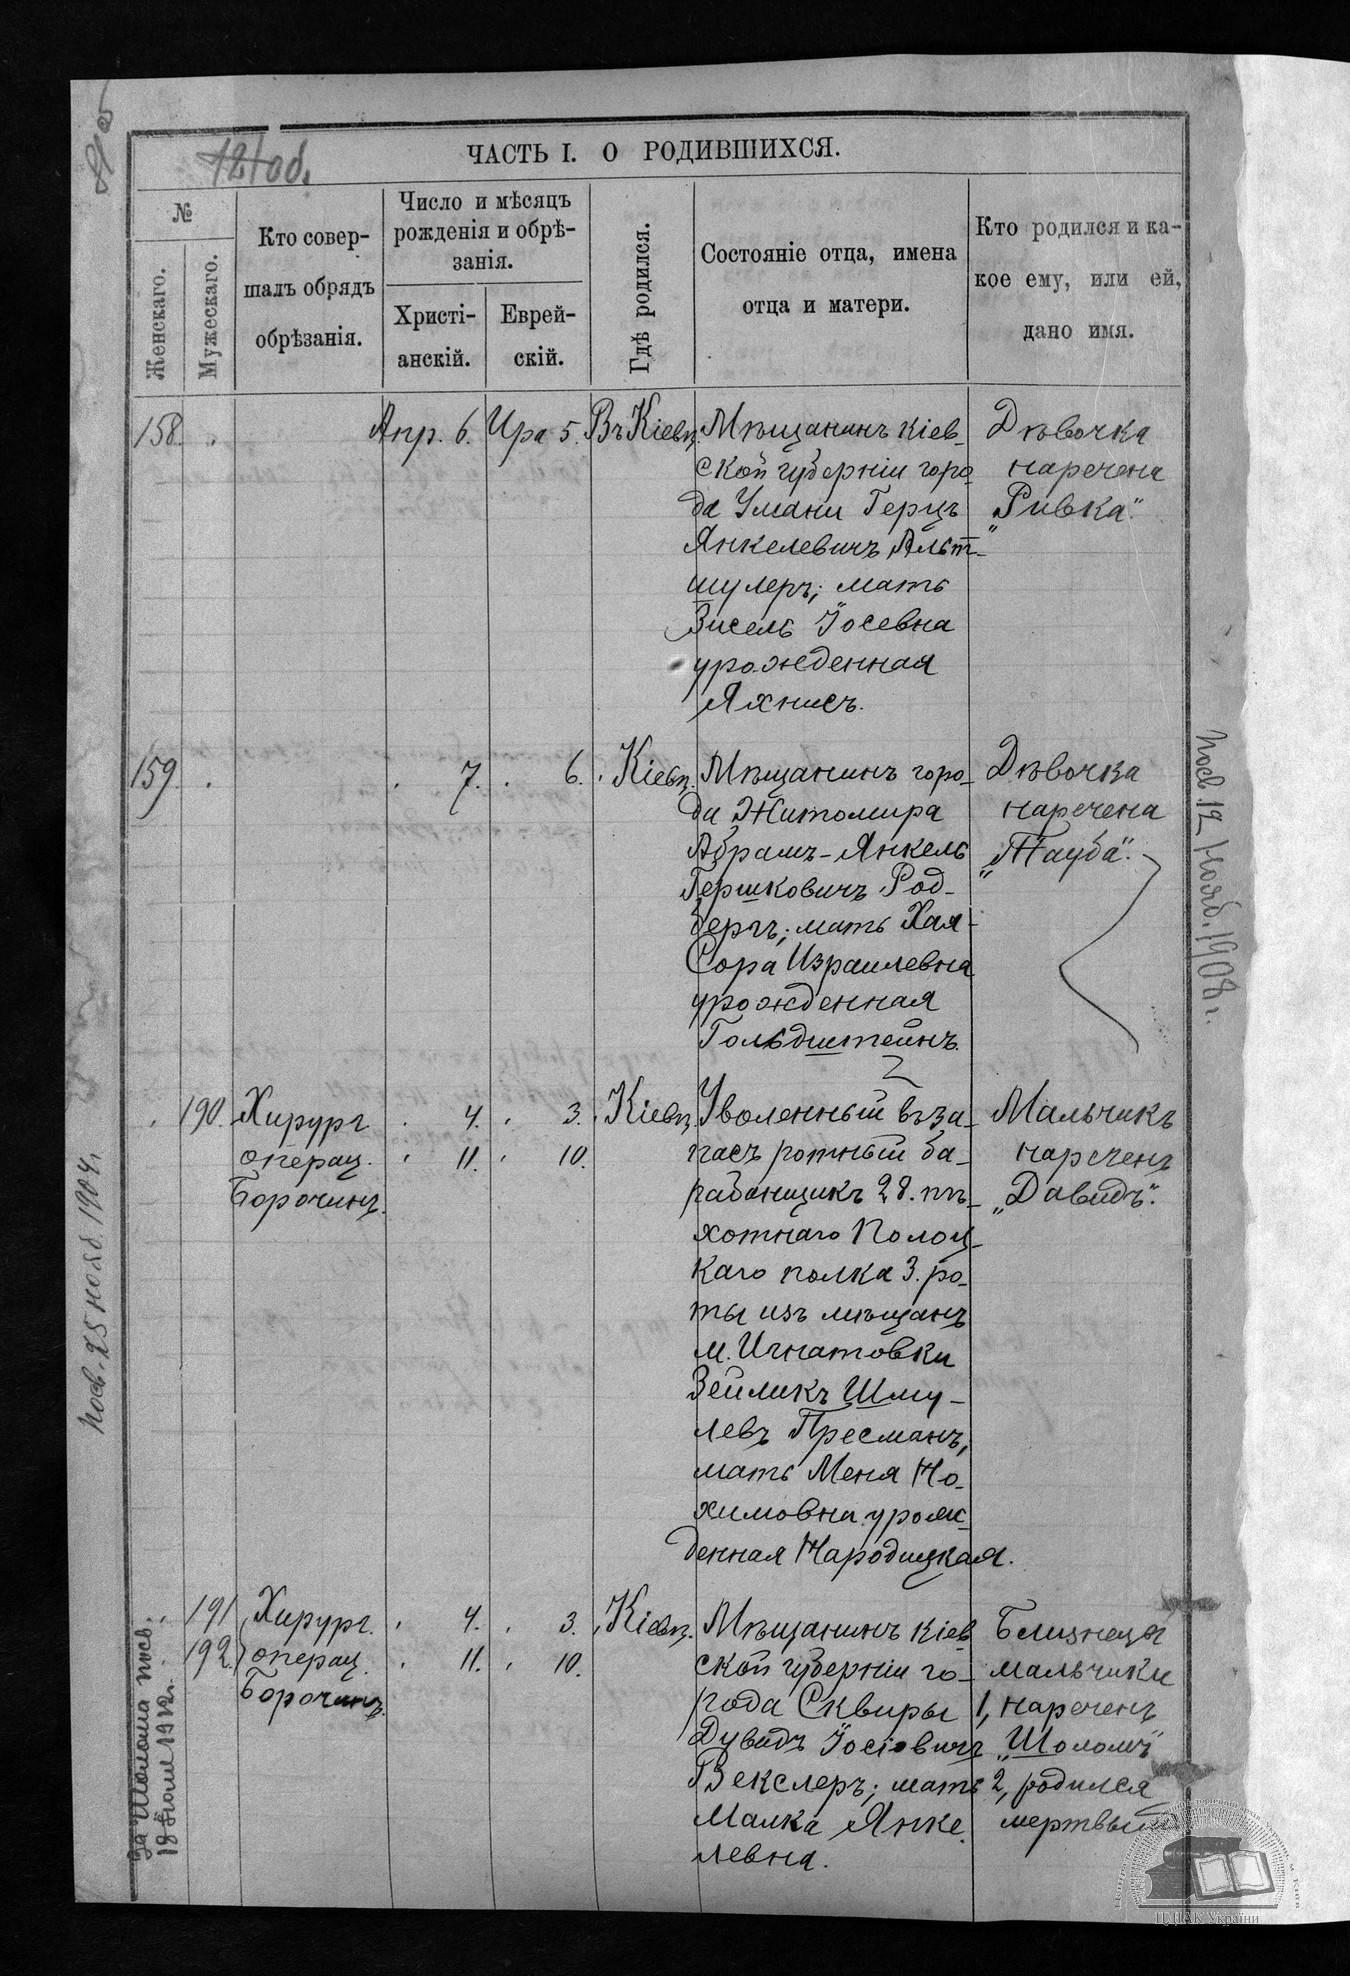 121 об.
ЧАСТЬ I. О РОДИВШИХСЯ.
№
Женскаго.
Мужескаго.
Кто совер-
шалъ обрядъ
обрѣзанія.
Число и мѣсяцъ
рожденія и обрѣ-
занія.
Христі-
анскій.
Еврей-
скій.
Гдѣ родился.
Состояніе отца, имена
отца и матери.
Кто родился и ка-
кое ему, или ей,
дано имя.
158.
Апр. 6.
Ира 5.
Въ Кіевѣ.
Мѣщанинъ Кіев-
ской губерніи горо-
да Умани Герцъ
Янкелевичъ Альт-
шулеръ; мать
Зисель Іосевна
урожденная
Яхнисъ.
Дѣвочка
наречена
„Ривка".
159.
7.
6.
Кіевѣ.
Мѣщанинъ горо-
да Житомира
Абрамъ-Янкель
Гершковичъ Род-
бергъ; мать Хая-
Сора Израилевна
урожденная
Гольдштейнъ.
Дѣвочка
наречена
„Тауба".
190.
Хирургъ
операц.
Борочинъ.
4.
11.
3.
10.
Кіевѣ.
Уволенный въ за-
пасъ ротный ба-
рабанщикъ 28. пѣ-
хотнаго Полоц-
каго полка 3. ро-
ты изъ мѣщанъ
м. Игнатовки
Зейликъ Шму-
левъ Пресманъ;
мать Меня Но-
химовна урож-
денная Народицкая.
Мальчикъ
нареченъ
„Давидъ".
191
192.
Хирургъ.
операц.
Борочинъ.
4.
11.
3.
10.
Кіевѣ.
Мѣщанинъ Кіев
ской губерніи го-
рода Сквиры
Дувидъ Іосіовичъ
Векслеръ; мать
Малка Янке-
левна.
Близнецы
мальчики
1, нареченъ
„Шоломъ"
2, родился
мертвымъ
Посв. 12 Нояб. 1908 г.
посв. 25 нояб. 1904 г.
за Шолома посв.
18 Іюля 1912 г.
ЦДІАК України